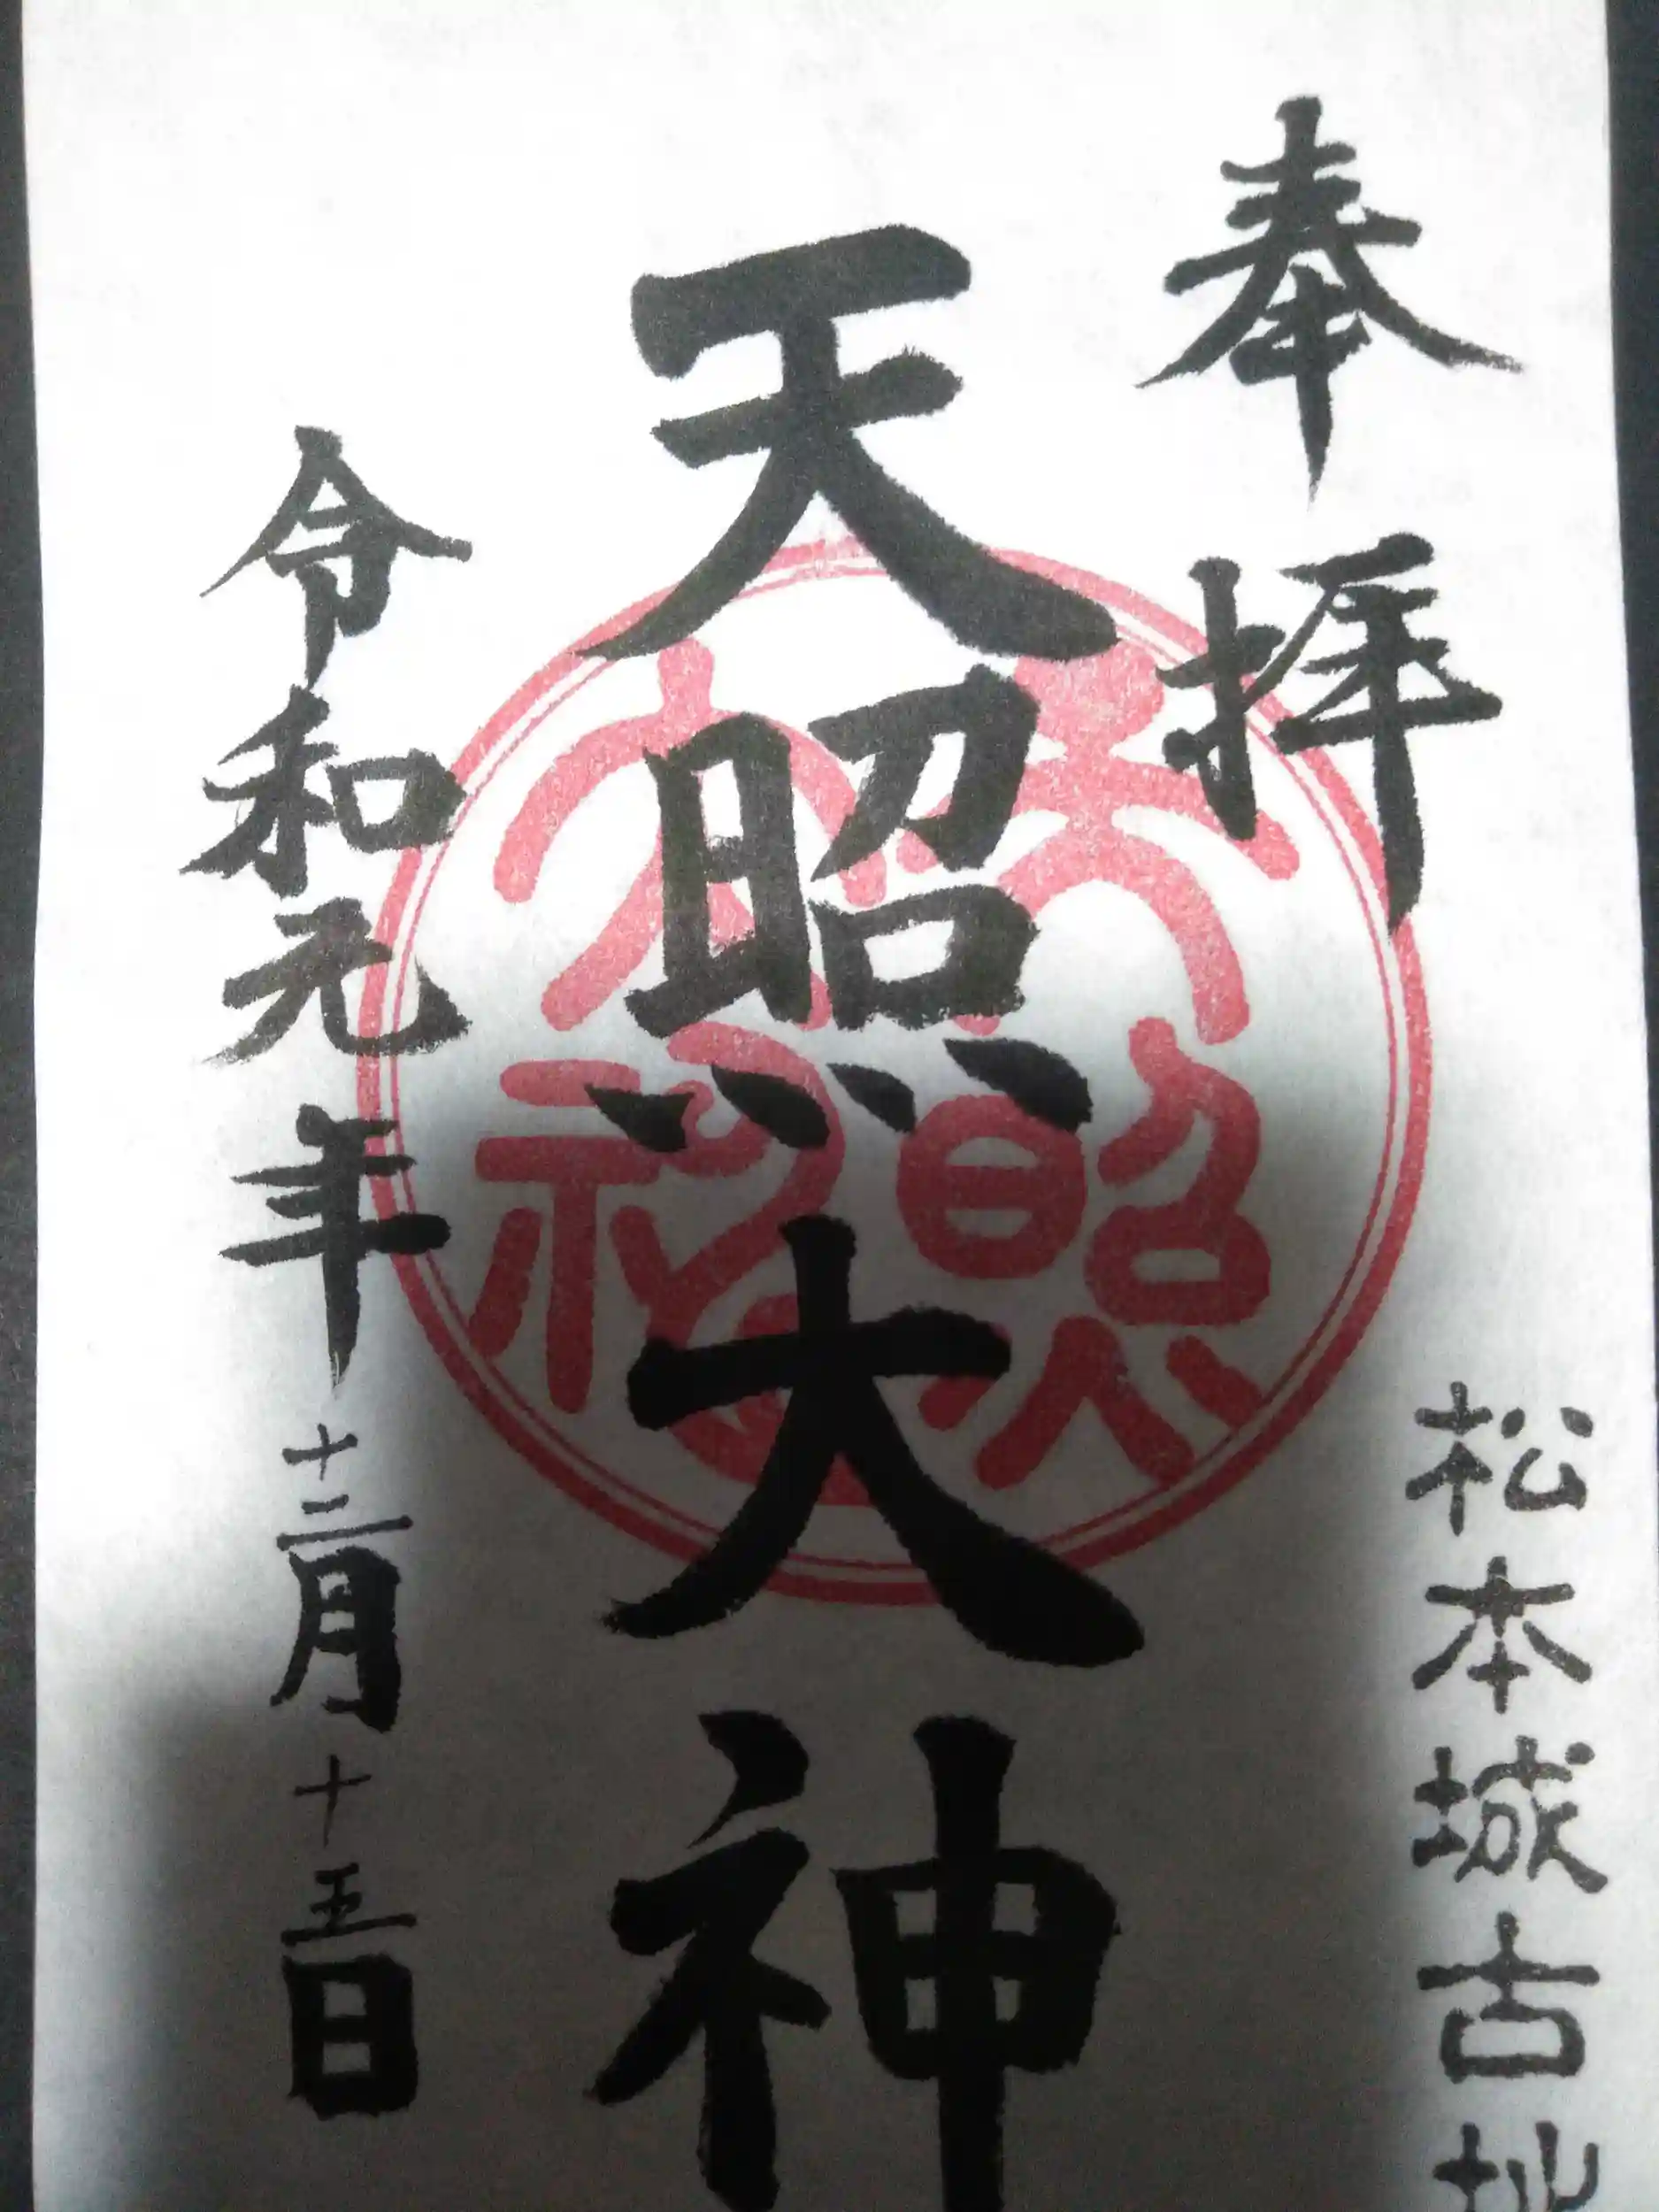 奉拝
松本城古址
天照大神
令和元年十二月十五日